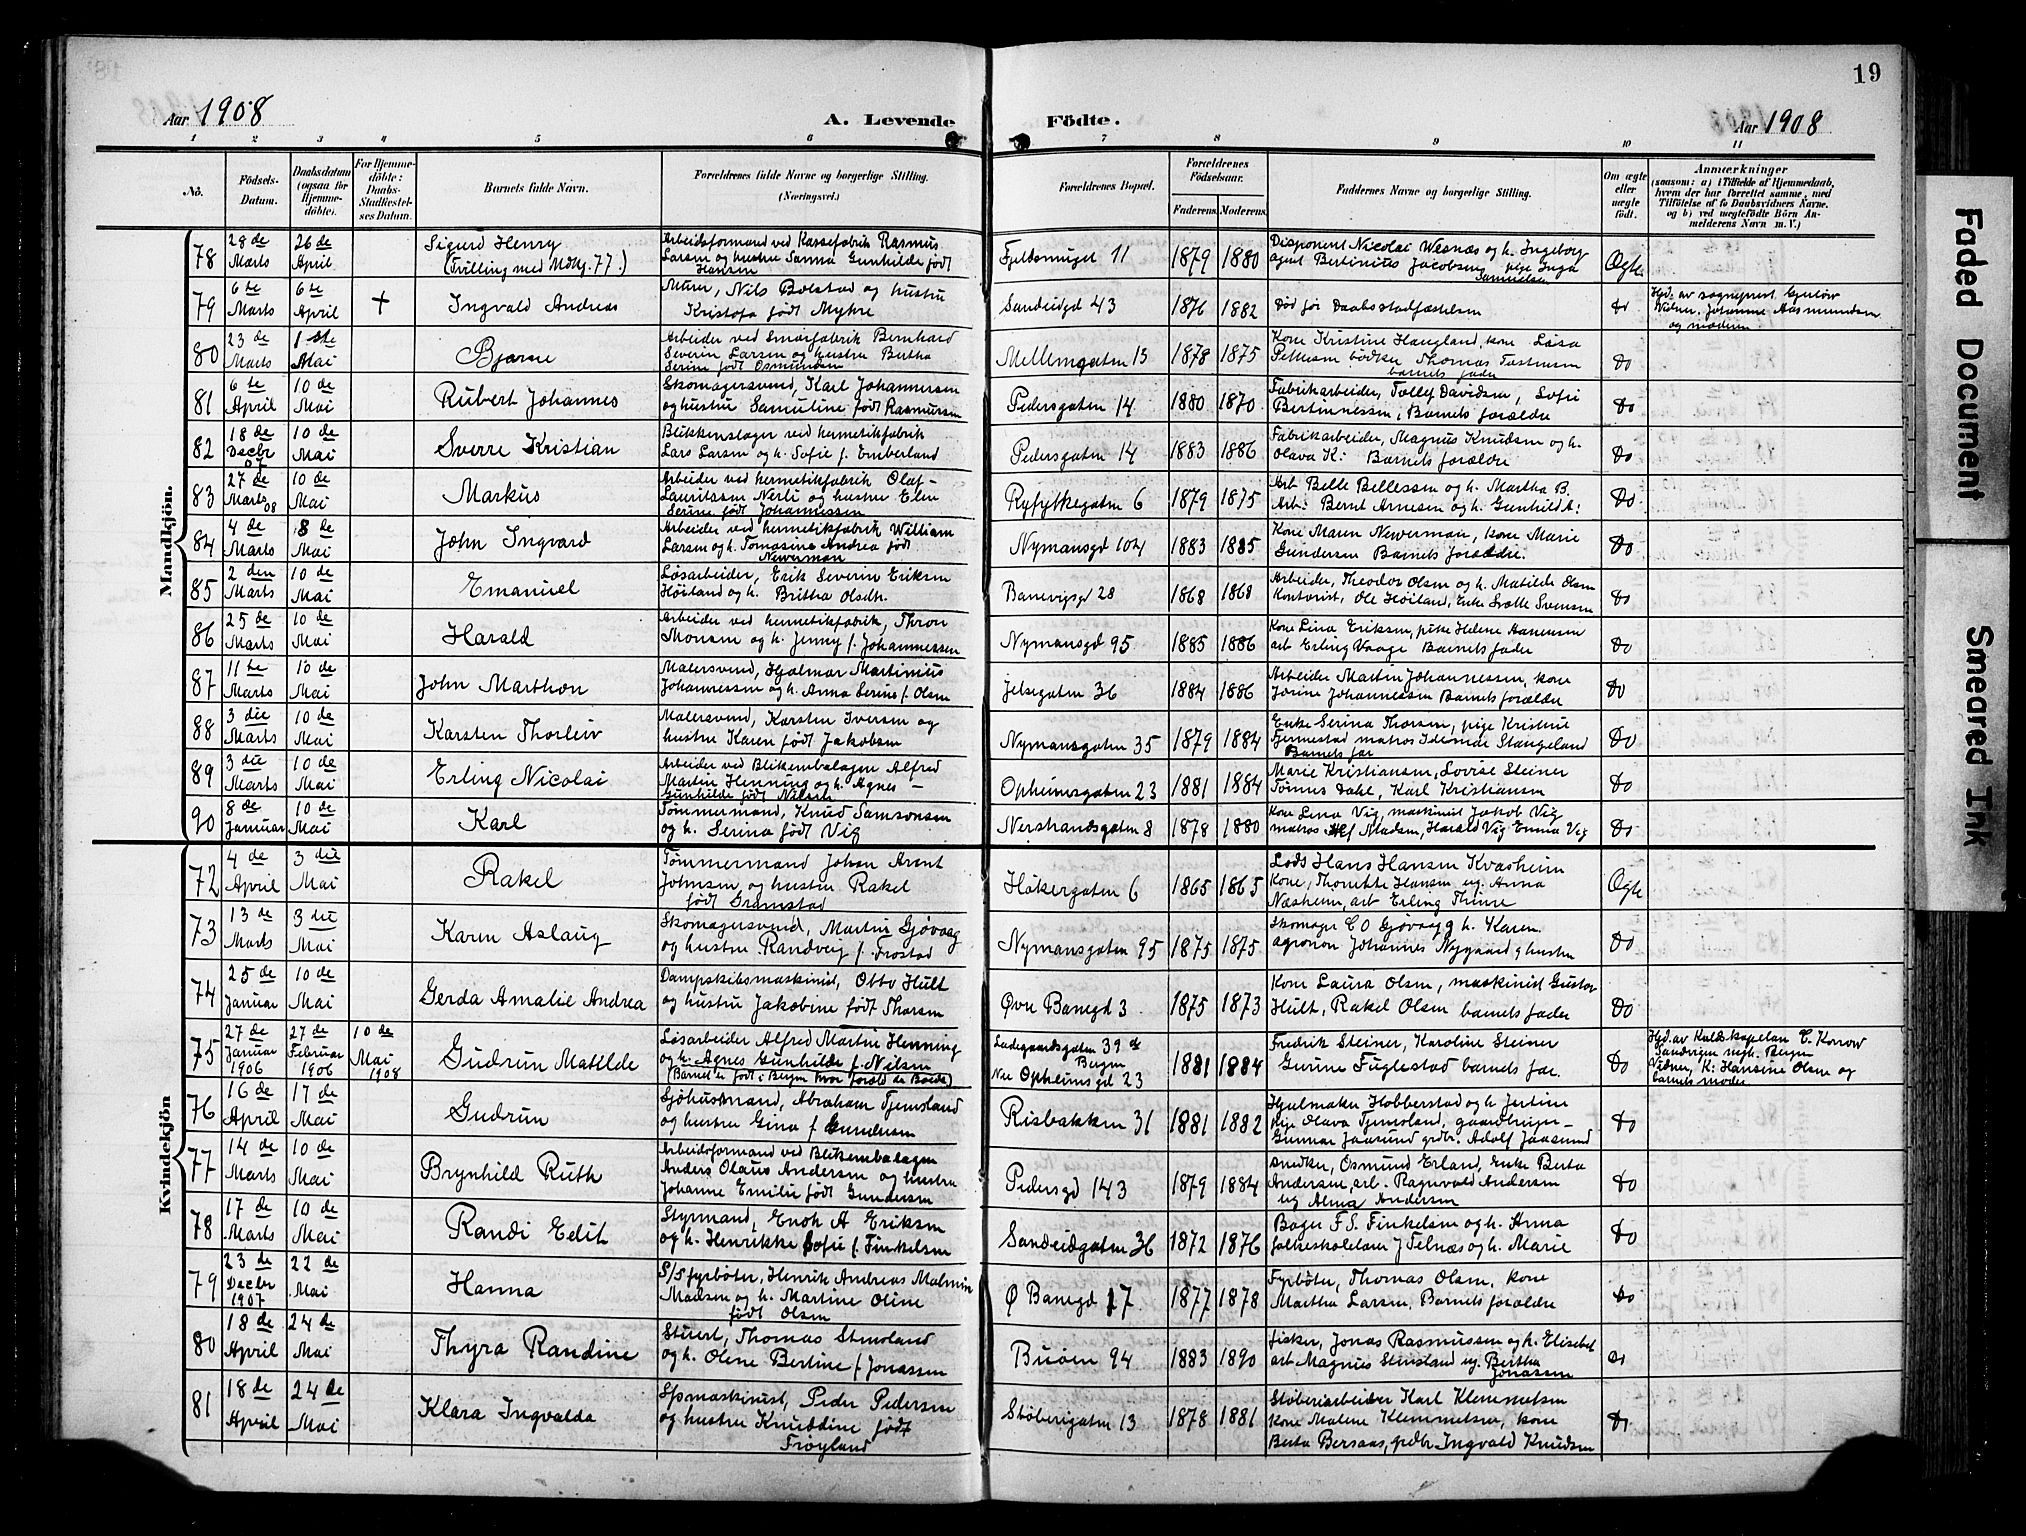 19
Aar 1908
A. Levende Födte.
Aar 1908
1 2 3 4 5 6 7 8 9 10 11
No.
Födsels-Datum.
Daabsdatum (ogsaa for Hjemme-döbte).
For Hjemme-döbte: Daabs-Stadfæstel-ses Datum.
Barnets fulde Navn.
Forældrenes fulde Navne og borgerlige Stilling. (Næringsvei.)
Forældrenes Bopæl.
Forældrenes Födselsaar.
Faderens. Moderens.
Faddernes Navne og borgerlige Stilling.
Om ægte eller uægte födt.
Anmærkninger
(saasom: a) i Tilfælde af Hjemmedaab, hvem der har forrettet samme, med Tilföielse af to Daabsvidners Navne, og b) ved uægtefödte Börn Anmelderens Navn m. V.)
Mandkjön.
78 28de Marts 26de April Sigurd Henry (Tvilling med Mdkj. 77.) Arbeidsformand ved Kassefabrik Rasmus Larsen og hustru Sanna Gunhilde født Hansen Fjeldsmuget 11 1879 1880 Disponent Nicolai Wesnæs og h. Ingeborg agent Bertinius Jacobsen, pige Inga Samuelsen Ægte
79 6te Marts 6te April + Ingvald Andreas Murer, Nils Bolstad og hustru Kristofa født Myhre Sandeidgd 43 1876 1882 Død før Daabsstadfæstelsen Do Hjd. av sogneprest Gjerløw Vidner. Johanne Aasmundsen og moderen
80 23de Marts 1ste Mai Bjarne Arbeider ved Smørfabrik Bernhard Severin Larsen og hustru Bertha Serine født Osmundsen Mellemgaten 13 1878 1875 Kone Kristine Haugland, kone Lovisa Pettersen bødker Thomas Tastensen barnets fader Do
81 6te April 10de Mai Robert Johannes Skomagersvend, Karl Johannesen og hustru Samuline født Rasmussen Pedersgaten 14 1880 1870 Fabrikarbeider, Tollef Davidsen, Sofie Bertinnessen, Barnets forældre Do
82 18de Decbr 07 10de Mai Sverre Kristian Blikkenslager ved hermetikfabrik Lars Larsen og h. Sofie f. Emberland Pedersgaten 14 1883 1886 Fabrikarbeider, Magnus Knudsen og h. Olava K: Barnets forældre Do
83 27de Marts 08 10de Mai Markus Arbeider ved hermetikfabrik Olaf Lauritssen Nerli og hustru Elen Serine født Johannessen Ryfylkegaten 6 1879 1875 Arb Belle Bellessen og h. Martha B. Arb: Bernt Arnesen og h. Gunhild A: Do
84 4de Marts 8de Mai John Ingvard Arbeider ved hermetikfabrik William Larsen og h. Tomasine Andrea født Newerman Nymansgd 104 1883 1885 Kone Maren Newerman, kone Marie Gundersen Barnets forældre. Do
85 2den Marts 10de Mai Emanuel Løsarbeider, Erik Severin Eriksen Høiland og h. Britha Olsdtr. Banevigsgd 28 1868 1868 Arbeider, Theodor Olsen og h. Matilde Olsen Kontorist, Ole Høiland, Enke Svensen Do
86 25de Marts 10de Mai Harald Arbeider ved hermetikfabrik, Thron Monsen og h. Jenny f. Johannessen Nymansgd 95 1885 1886 Kone Lina Eriksen, pike Helene Hanensen arb Erling Vaage Barnets fader Do
87 11te Marts 10de Mai John Marthon Malersvend, Hjalmar Martinius Johannessen og h. Anna Serine f. Olsen Jelsegaten 36 1884 1886 Arbeider Martin Johannessen, kone Jorine Johannessen Barnets forældre Do
88 3die Marts 10de Mai Karsten Thorleiv Malersvend, Karsten Iversen og hustru Karen født Jakobsen Nymansgaten 35 1879 1884 Enke Serina Thorsen, pige Kristine Fjermestad matros Stangeland Barnets far Do
89 3die Marts 10de Mai Erling Nicolai Arbeider ved Blikembalagen Alfred Martin Henning og h. Agnes Gunhilde født Nilsen Opheimsgaten 23 1881 1884 Marie Kristiansen, Lovise Steiner Tønnes Dahl, Karl Kristiansen Do
90 8de Januar 10de Mai Karl Tømmermand, Knud Samsonsen og h. Serina født Vig Nerstrandsgaten 8 1878 1880 Kone Lina Vig, maskinist Jakob Vig matros Alf Madsen, Harald Vig Emma Vig Do
Kvindekjön
72 4de April 3die Mai Rakel Tømmermand Johan Arent Johnsen, og hustru Rakel født Gramstad Høkergaten 6 1865 1865 Lods Hans Hansen Kvasheim Kone, Thomitte Hansen ug. Anna Næsheim, arb Erling Thime Ægte
73 13de Marts 3die Mai Karen Aslaug Skomagersvend, Martin Gjøvaag og hustru Randveig f. Frostad Nymansgaten 95 1875 1875 Skomager C O Gjøvaag og h. Karen. agronom Johannes Nygaard og hustru Do
74 25de Januar 10de Mai Gerda Amalie Andrea Dampskibsmaskinist, Otto Hult og hustru Jakobine født Thorsen Øvre Banegd 3 1875 1873 Kone Laura Olsen, maskinist Gustav Hult, Rakel Olsen barnets fader Do
75 27de Januar 1906 27de Februar 1906 10de Mai 1908 Gudrun Matilde Løsarbeider Alfred Martin Henning og h. Agnes Gunhilde f. Nilsen (Barnet er født i Bergen hvor foræld de Boede) Ladegaardsgaten 39 Bergen Nu Opheimsgd 23 1881 1884 Fredrik Steiner, Karoline Steiner Gurine Fuglestad barnets far. Do Hjd. av Kaldskapelan C. Konow Sandvigen mgh. Bergen Vidner, K: Hansine Olsen og barnets moder
76 16de April 17de Mai Gudrun Sjøhusmand, Abraham Tjemsland og hustru Gina f Gundersen Risbakken 31 1881 1882 Hjulmaker Hobberstad og h. Jertine Pige Olava Tjemsland, gaardbruger Gunnar Jaasund grdbr. Adolf Jaasund Do
77 14de Marts 10de Mai Brynhild Ruth Arbeidsformand ved Blikembalagen Anders Olaus Andersen og hustru Johanne Emilie født Gundersen Pedersgd 143 1879 1884 Snedker, Osmund Erland, Enke Berta Andersen, arb. Ragnvald Andersen ug Alma Andersen Do
78 17de Marts 10de Mai Randi Edit Styrmand, Enoh A Eriksen og h. Henrikke Sofie f. Finkelsen Sandeidgaten 36 1872 1876 Bager F.S. Finkelsen og h. Anna folkeskolelærer J Telnæs og h. Marie Do
79 23de Decbr 1907 22de Mai Hanna S/S fyrbøter, Henrik Andreas Malmin Madsen og h. Martine Oline født Olsen Ø Banegd 17 1877 1878 Fyrbøter, Thomas Olsen, kone Martha Larsen, Barnets forældre Do
80 18de April 24de Mai Thyra Randine Stuert, Thomas Stensland og h. Olene Bertine f Jonassen Buøen 94 1883 1890 fisker, Jonas Rasmussen og h. Elisabet arb Magnus Stensland ug. Bertha Jonassen Do
81 18de April 24de Mai Klara Ingvalda Spmaskinist, Peder Pedersen og hustru Knuddine født Frøyland Støberigaten 13 1878 1881 Støberiarbeider Karl Klemmetsen Kone Malene Klemmetsen, kone Berta Bersaas, grdbr Ingvald Knudsen Do
Faded Document
Smeared Ink